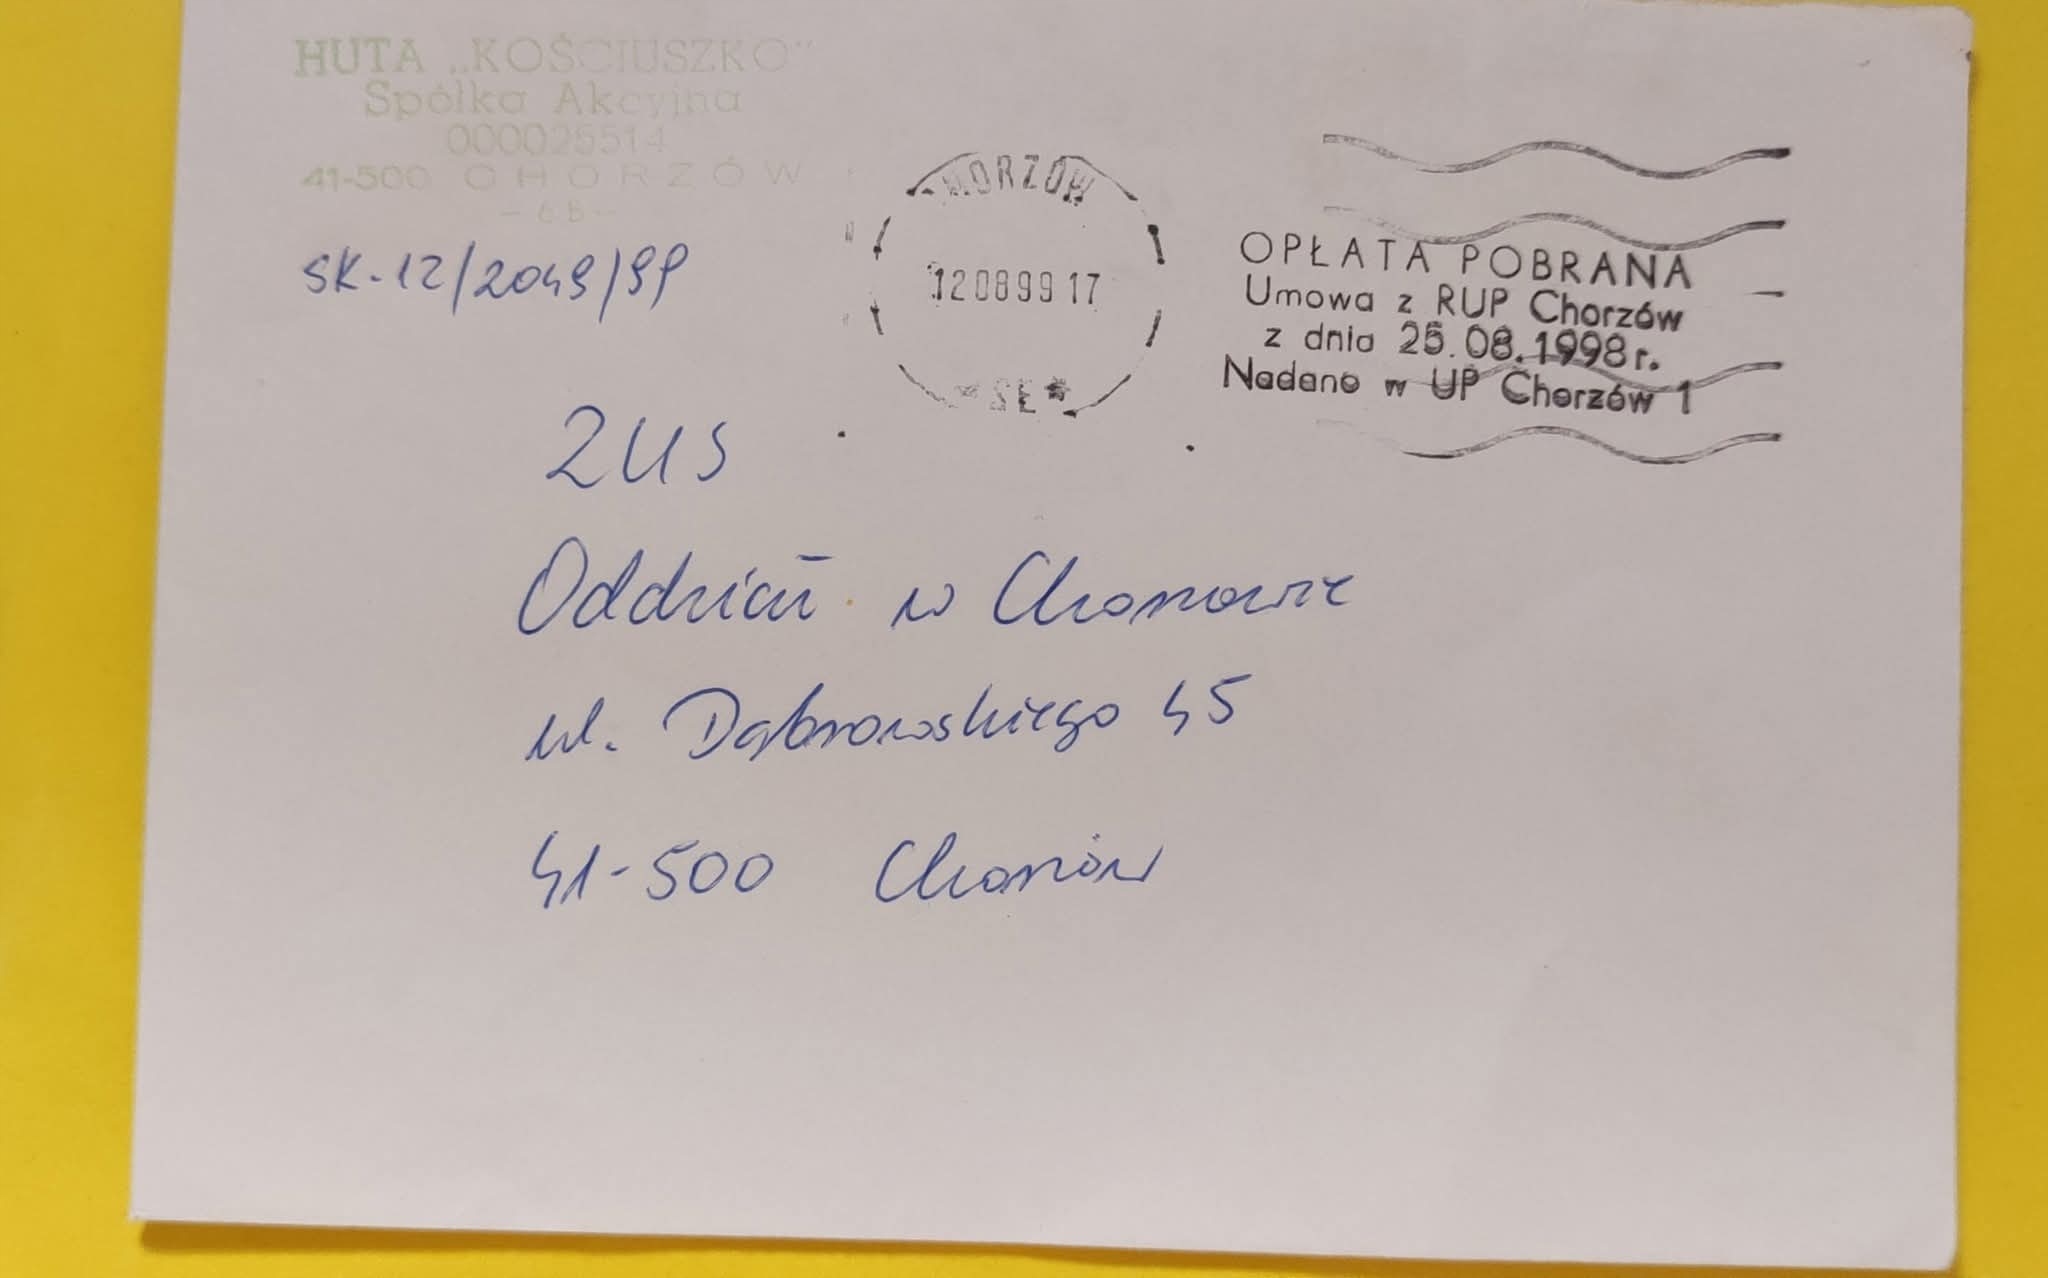 HUTA „KOŚCIUSZKO”
Spółka Akcyjna
000025514
41-500 CHORZÓW
- 6B -
SK-12/2049/99
CHORZÓW
12 08 99 17
* SE *
OPŁATA POBRANA
Umowa z RUP Chorzów
z dnia 25.08.1998 r.
Nadano w UP Chorzów 1
ZUS
Oddział w Chorzowie
ul. Dąbrowskiego 45
41-500 Chorzów